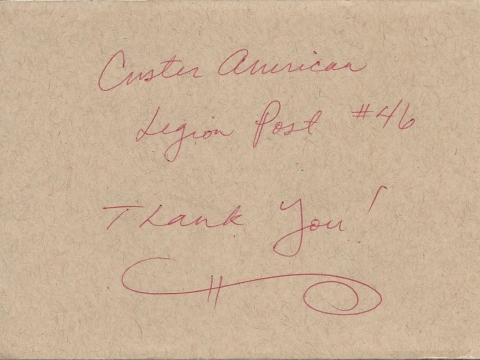 Custer American
Legion Post #46
Thank You!